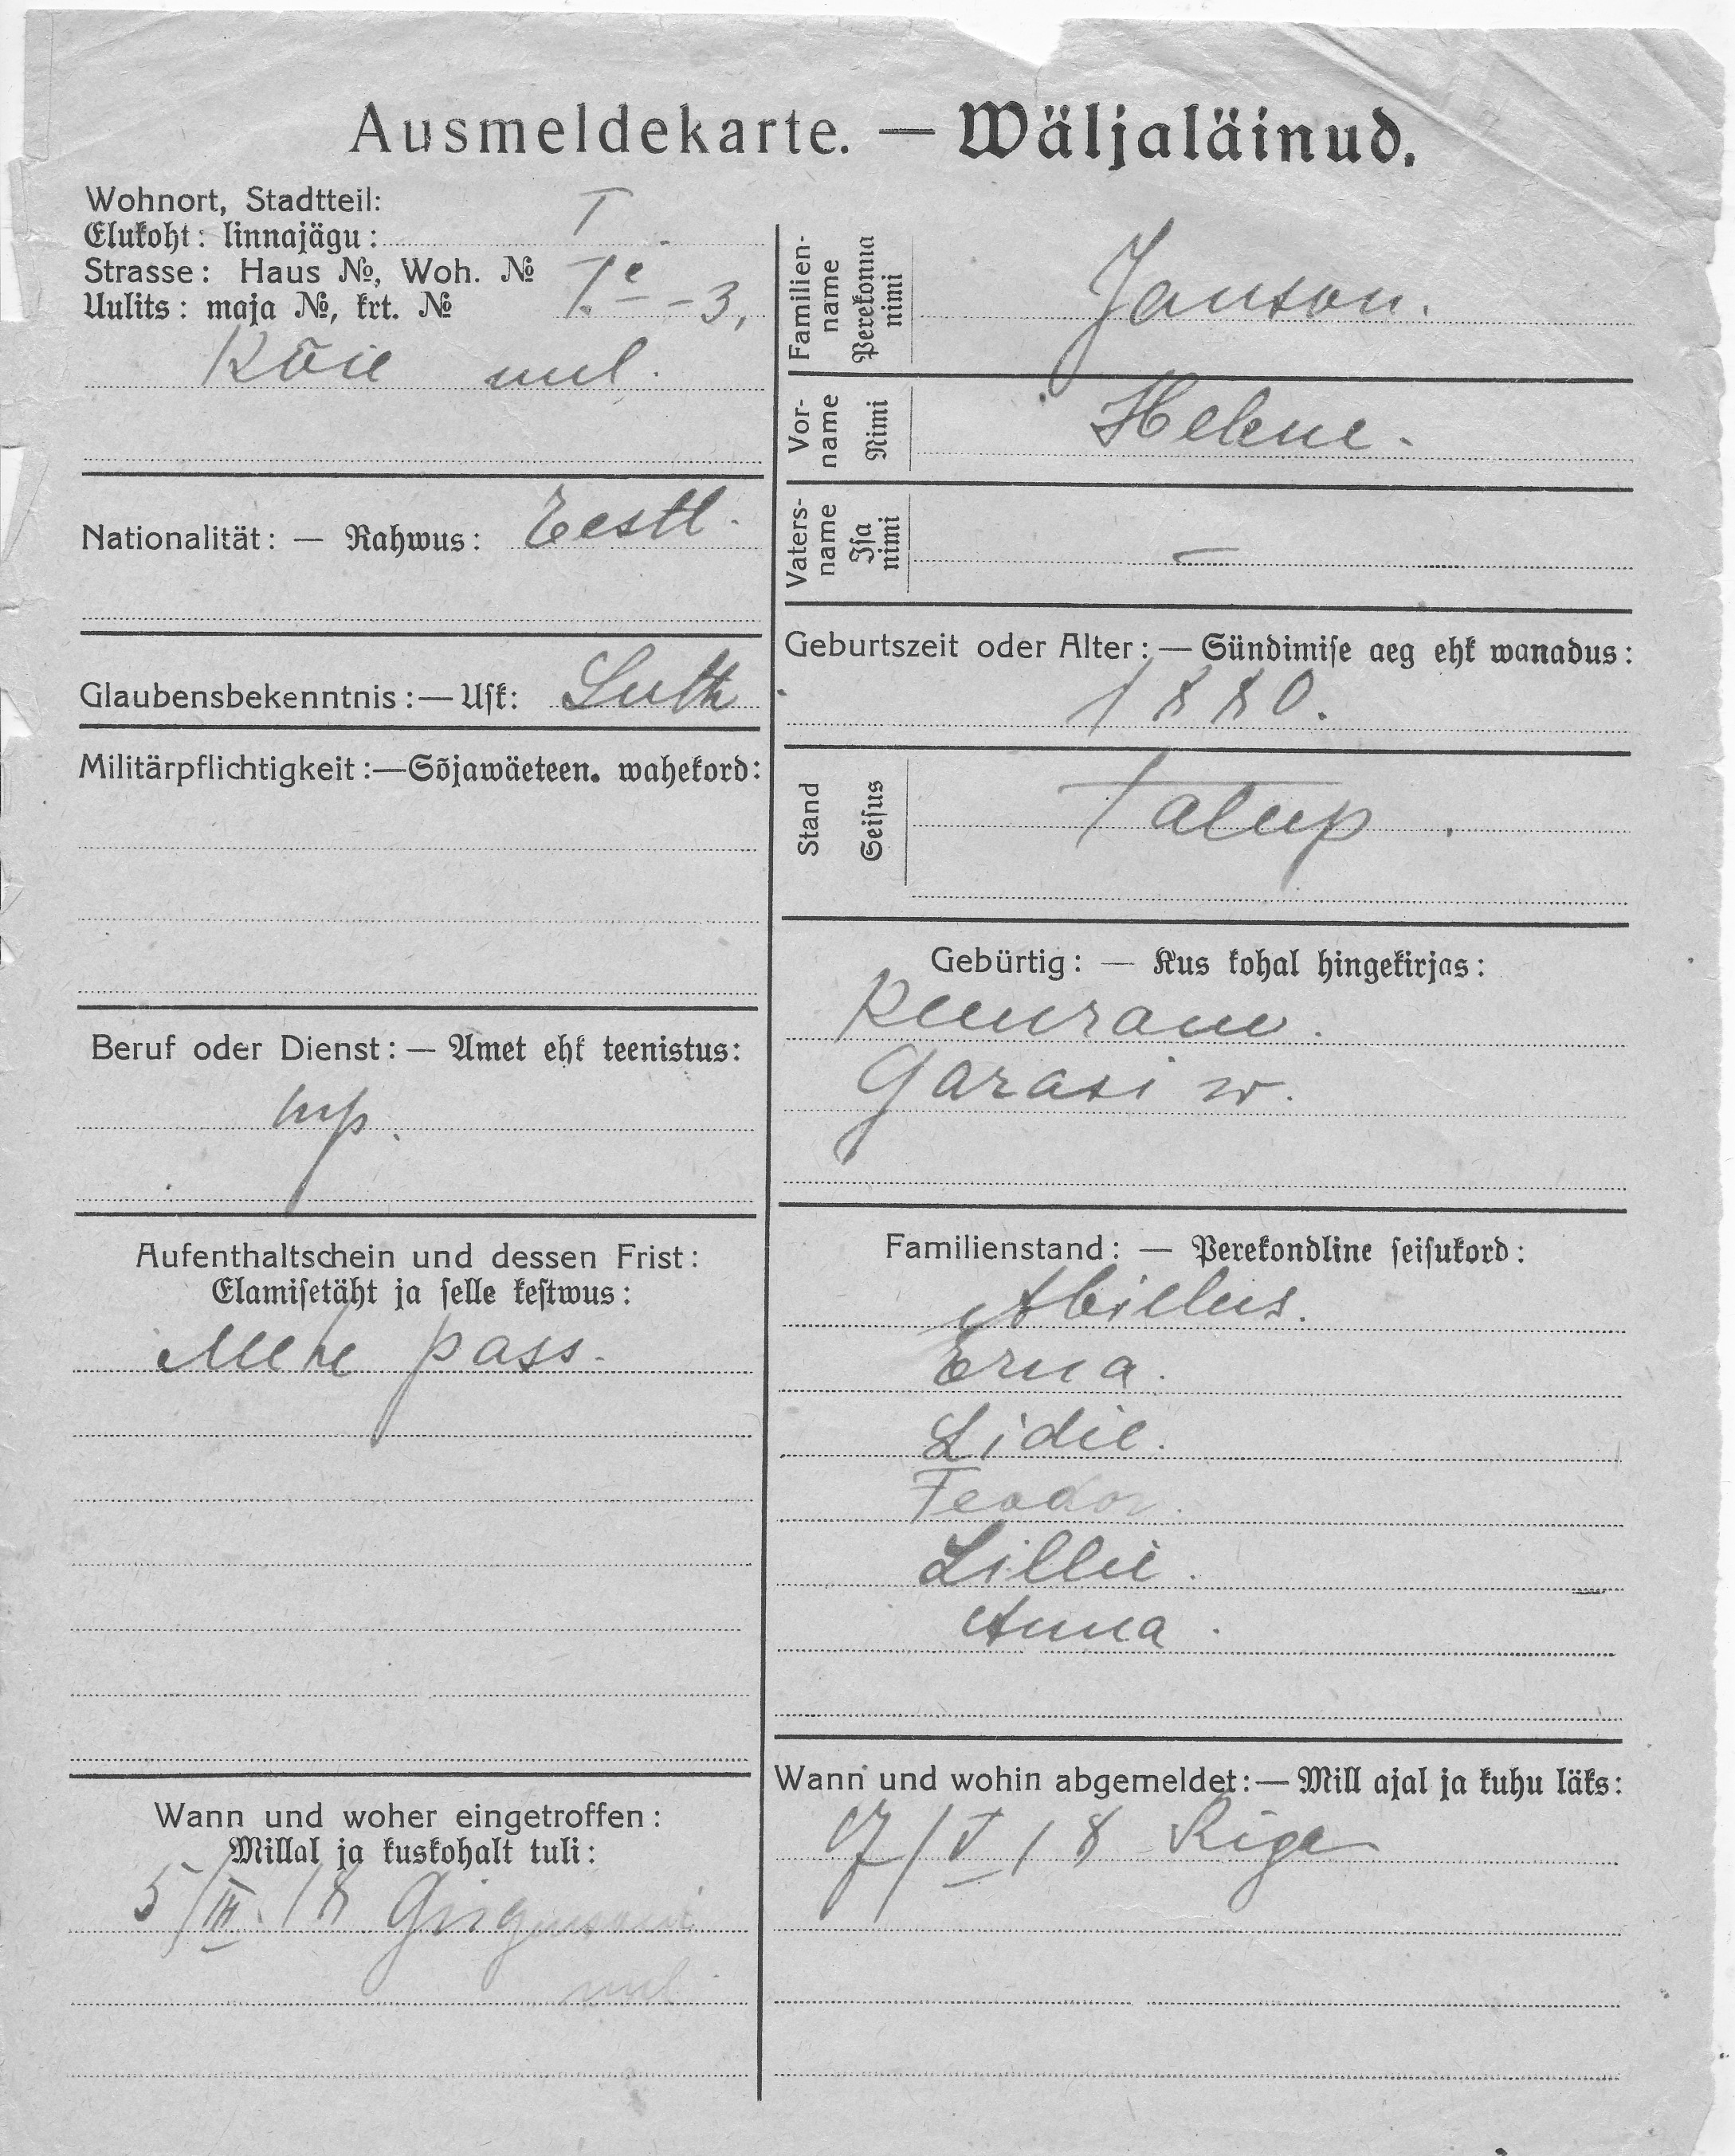 Ausmeldekarte. — Wäljaläinud.
Wohnort, Stadtteil:
Elukoht: linnajägu: I
Strasse: Haus №, Woh. №
Uulits: maja №, krt. № -3.
Köie uul.
Nationalität: — Rahwus: Eestl.
Glaubensbekenntnis: — Usk: Luth
Militärpflichtigkeit: — Sõjawäeteen. wahekord:
Beruf oder Dienst: — Amet ehk teenistus:
Aufenthaltschein und dessen Frist:
Elamisetäht ja selle kestwus:
Mehe pass.
Wann und woher eingetroffen:
Millal ja kuskohalt tuli:
5/III. 18
uul.
Familien-name Perekonna nimi Janson.
Vor-name Nimi Helene.
Vaters-name Isa nimi —
Geburtszeit oder Alter: — Sündimise aeg ehk wanadus:
1880.
Stand Seisus Talup.
Gebürtig: — Kus kohal hingekirjas:
Garasi w.
Familienstand: — Perekondline seisukord:
Abielus.
Erna.
Lidie.
Feodor.
Lillii.
Anna.
Wann und wohin abgemeldet: — Mill ajal ja kuhu läks:
/V 18 Riga